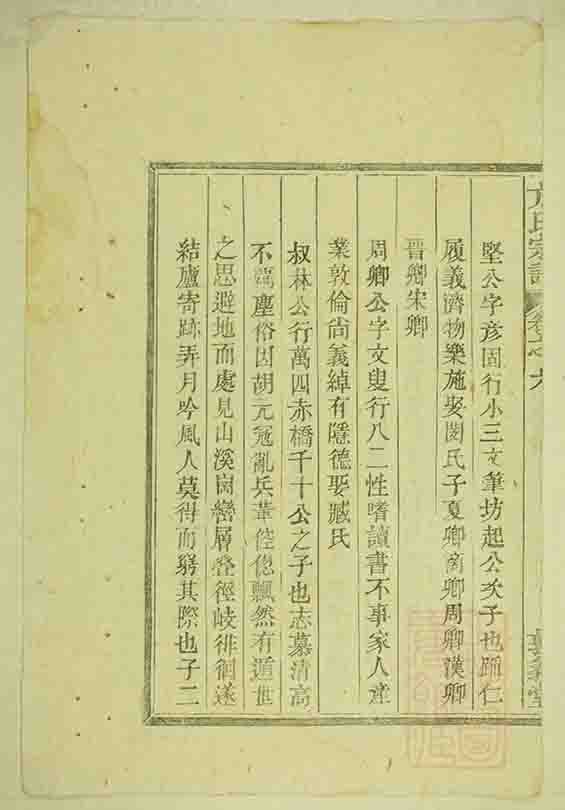 方氏宗譜 卷之六
堅公字彥固行小三文筆坊起公次子也踊仁
履義濟物樂施娶閔氏子夏卿商卿周卿漢卿
晉卿宋卿
周卿公字文叟行八二性嗜讀書不事家人產
業敦倫尚義綽有隱德娶臧氏
叔林公行萬四赤橋千十公之子也志慕清高
不羈塵俗因胡元冦亂兵革倥偬飄然有遁世
之思避地而處見山溪崗巒層叠徑岐徘徊遂
結廬寄跡弄月吟風人莫得而窮其際也子二
堂